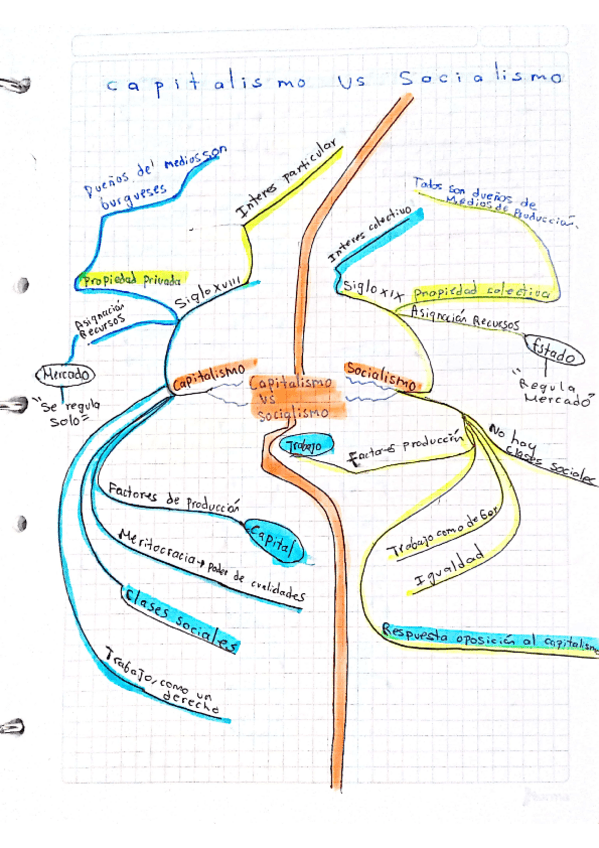 Capitalismo vs Socialismo
Dueños de' medios son
burgueses
Interes particular
Propiedad privada
Siglo XVIII
Asignación
Recursos
Mercado
"Se regula
Solo"
Capitalismo
Capitalismo
VS
Socialismo
Factores de Producción
Capital
Meritocracia → Poder de cualidades
Clases sociales
Trabajo, como un
derecho
Todos son dueños de
Medios de Producción.
Interes colectivo
Siglo XIX
propiedad colectiva
Asignación Recursos
Estado
"Regula
Mercado"
Socialismo
Trabajo
Factores producción
No hay
clases sociales
Trabajo como
Igualdad
Respuesta oposición al capitalismo